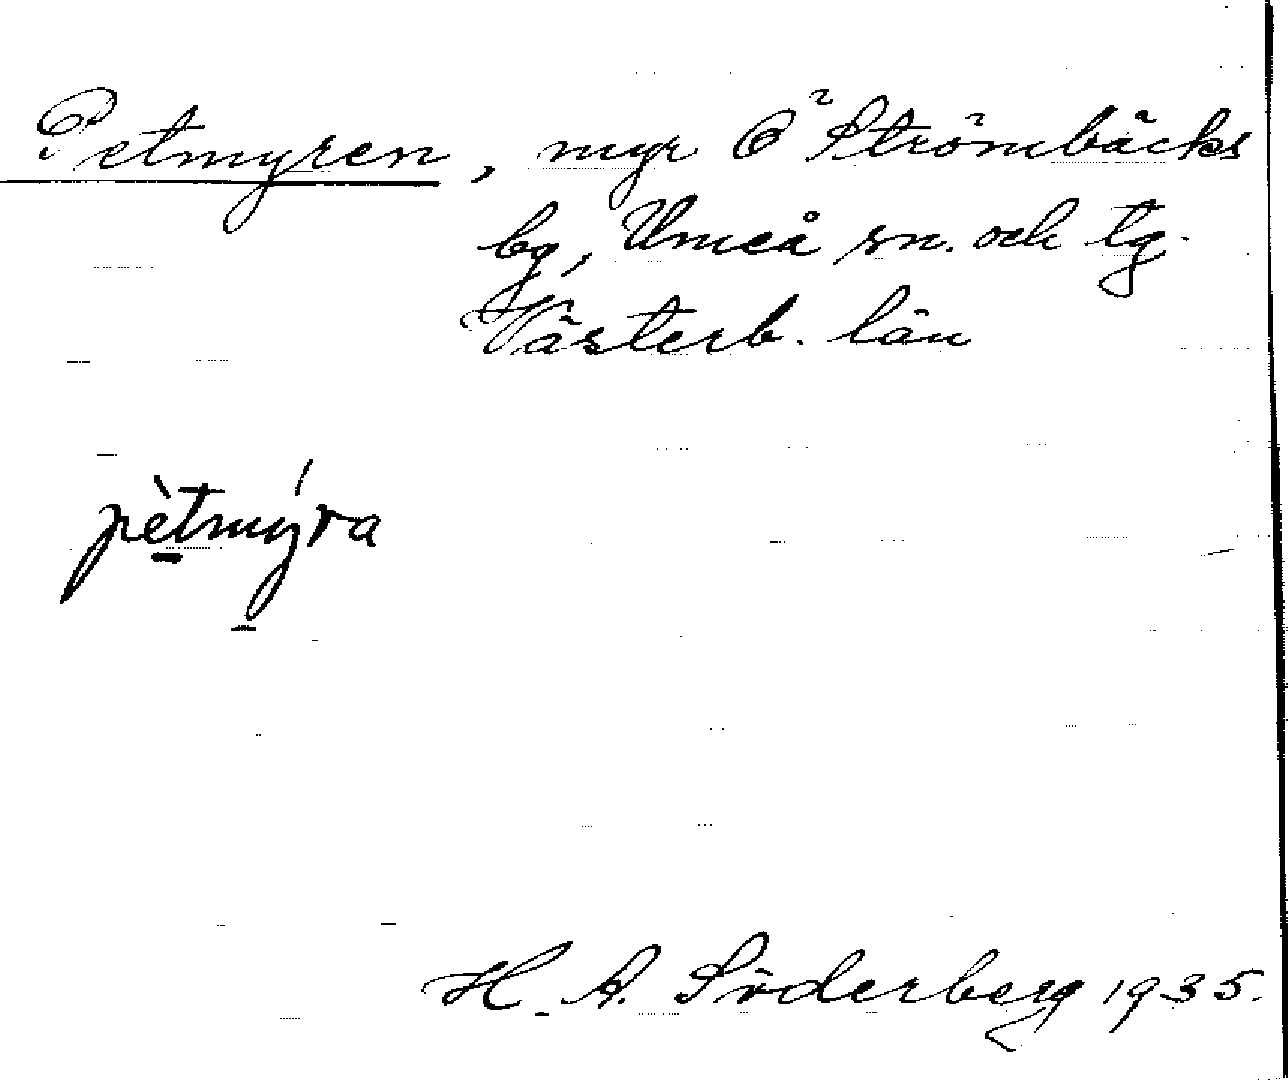 Petmyren, myr Ö Strömbäcks
by, Umeå sn. och tg.
Västerb. län
pètmýra
H. A. Söderberg 1935.